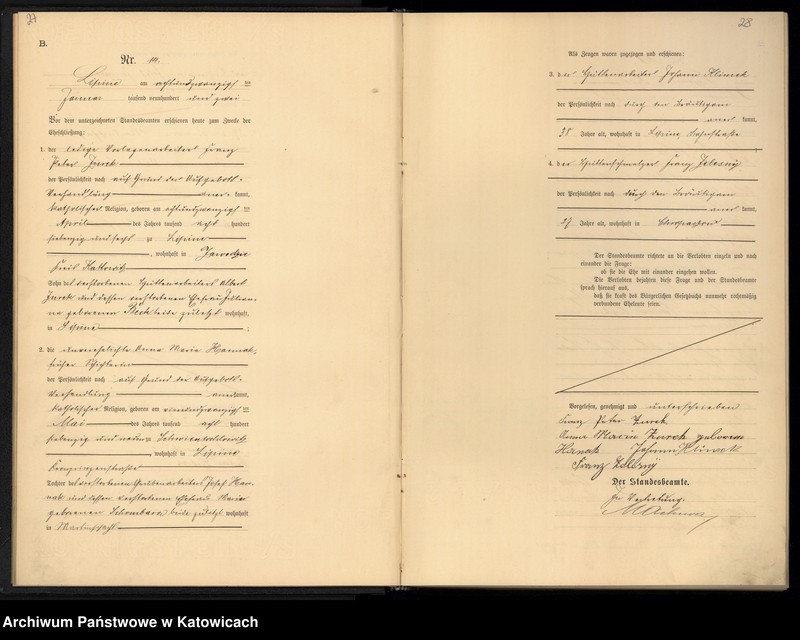 27
B.
Nr. 10.
Lipine am achtundzwanzigsten
Januar tausend neunhundert und zwei
Vor dem unterzeichneten Standesbeamten erschienen heute zum Zwecke der
Eheschließung:
1. der ledige Vorlagenarbeiter Franz
Peter Zurek
der Persönlichkeit nach auf Grund der Aufgebots-
Verhandlung anerkannt,
katholischer Religion, geboren am achtundzwanzigsten
April des Jahres tausend acht hundert
siebenzig und sechs zu Lipine
, wohnhaft in Zawodzie
Kreis Kattowitz
Sohn des verstorbenen Hüttenarbeiters Albert
Zurek und dessen verstorbenen Ehefrau Julian-
na geborenen beide zuletzt wohnhaft
in Lipine ;
2. die unverehelichte Anna Marie Hannak,
früher
der Persönlichkeit nach auf Grund der Aufgebots-
Verhandlung anerkannt,
katholischer Religion, geboren am einundzwanzigsten
Mai des Jahres tausend acht hundert
siebenzig und neun zu Schwientochlowitz
, wohnhaft in Lipine
Kronprinzenstraße
Tochter des verstorbenen Grubenarbeiters Josef Han-
nak und dessen verstorbenen Ehefrau Marie
geborenen Schombara beide zuletzt wohnhaft
in
28
Als Zeugen waren zugezogen und erschienen:
3. der Hüttenarbeiter Johann Klimek
der Persönlichkeit nach durch den Bräutigam
anerkannt,
38 Jahre alt, wohnhaft in Lipine
4. der Hüttenschmelzer Franz Zelesny
der Persönlichkeit nach durch den Bräutigam
anerkannt,
27 Jahre alt, wohnhaft in Chropaczow
Der Standesbeamte richtete an die Verlobten einzeln und nach
einander die Frage:
ob sie die Ehe mit einander eingehen wollen.
Die Verlobten bejahten diese Frage und der Standesbeamte
sprach hierauf aus,
daß sie kraft des Bürgerlichen Gesetzbuchs nunmehr rechtmäßig
verbundene Eheleute seien.
Vorgelesen, genehmigt und unterschrieben
Franz Peter Zurek
Anna Marie Zurek geborene
Hanak Johann Klimek
Franz Zelesny
Der Standesbeamte.
In Vertretung.
Archiwum Państwowe w Katowicach